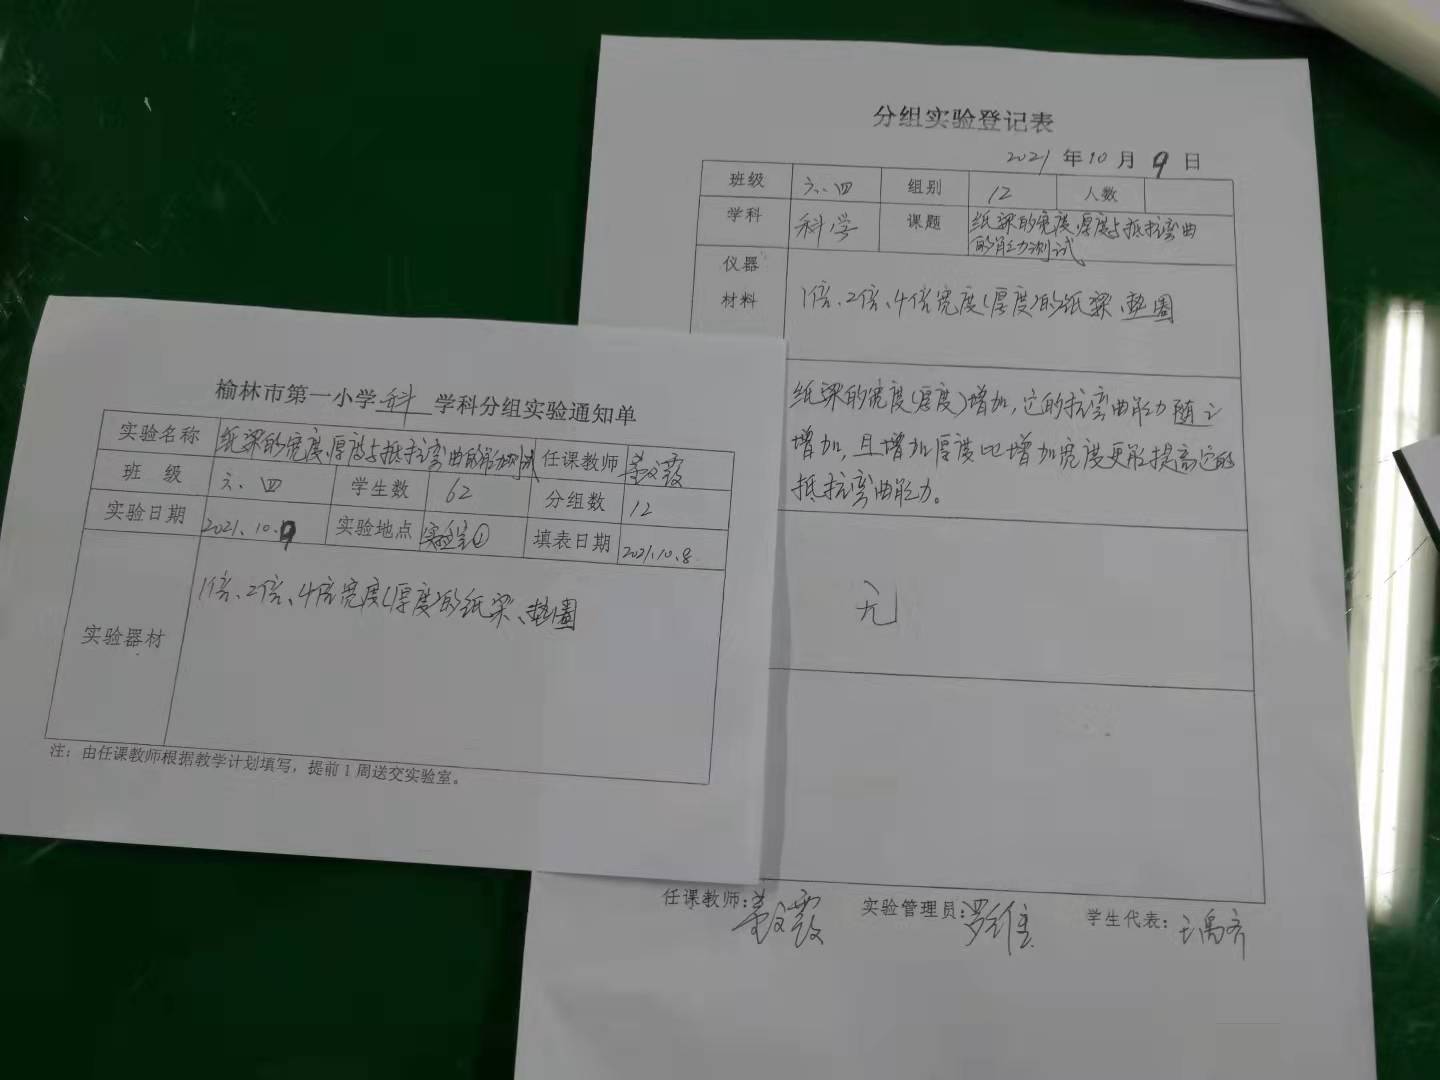 分组实验登记表
2021 年 10 月 9 日
班级 六.四 组别 12 人数
学科 科学 课题 纸梁的宽度、厚度与抵抗弯曲
的能力测试
仪器
材料
1倍、2倍、4倍宽度(厚度)的纸梁、垫圈
纸梁的宽度(厚度)增加,它的抗弯曲能力随之
增加,且增加厚度比增加宽度更能提高它的
抵抗弯曲能力。
无
任课教师: 实验管理员: 学生代表:
榆林市第一小学 科 学科分组实验通知单
实验名称 纸梁的宽度、厚度与抵抗弯曲的能力测试 任课教师
班 级 六.四 学生数 62 分组数 12
实验日期 2021.10.9 实验地点 实验室① 填表日期 2021.10.8.
实验器材 1倍、2倍、4倍宽度(厚度)的纸梁、垫圈
注:由任课教师根据教学计划填写,提前 1 周送交实验室。